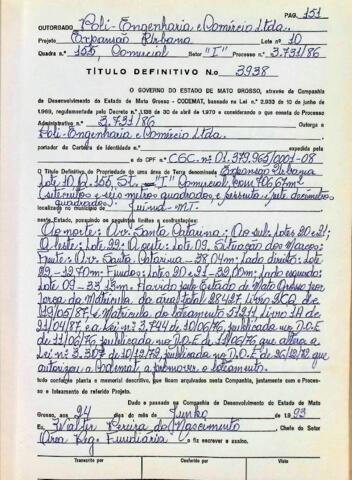 PAG. 151
OUTORGADO Poli-Engenharia e Comércio Ltda..
Projeto Expansão Urbana Lote n.º 10
Quadra n.º 155, Comercial Setor "I" Processo n.º 3.731/86
TÍTULO DEFINITIVO N.o 3938
O GOVERNO DO ESTADO DE MATO GROSSO, através da Companhia
de Desenvolvimento do Estado de Mato Grosso - CODEMAT, baseado na Lei n.º 2.933 de 10 de junho de
1969, regulamentada pelo Decreto n.º 1.138 de 30 de abril de 1970 e considerando o que consta do Processo
Administrativo n.º 3.731/86 Outorga a
Poli-Engenharia e Comércio Ltda.
portador da Carteira de Identidade n.º
e do CPF n.º CGC. nº 01.379.965/0001-08
O Título Definitivo de Propriedade de uma área de Terra denominada Expansão Urbana
Lote 10, Q. 155, St. "I" Comercial, com 706,67m²
(setecentos e seis metros quadrados e sessenta e sete decímetros
quadrados)
localizada no município de Juína-MT
neste Estado, possuindo os seguintes limites e confrontações:
Ao norte: Av. Santa Catarina; Ao sul: Lotes 20 e 21;
A leste: Lote 22; A oeste: Lote 09. Situação dos Marcos:
Frente: Av. Santa Catarina - 38,04m. Lado direito: Lote
22 - 12,70m. Fundos: Lotes 20 e 21 - 32,00m. Lado esquerdo:
Lote 09 - 33,13m. Havido pelo Estado de Mato Grosso por
força da Matrícula da área total 28427, Livro 2CQ, de
19/05/87, e Matrícula do Loteamento 51271, Livro 1A de
21/04/87 e a Lei nº 3.744 de 10/06/76, publicada no D.O.E
de 11/06/76, publicada no D.O.E de 11/06/76 que altera a
Lei nº 3.307 de 10/12/72, publicada no D.O.E de 26/12/72 que
autorizou a Codemat a promover o loteamento.
tudo conforme planta e memorial descritivo, que ficam arquivados nesta Companhia, juntamente com o Processo
e loteamento do referido Projeto.
Dado e passado na Companhia de Desenvolvimento do Estado de Mato
Grosso, aos 24 dias do mês de Junho de 19 93
Eu, Walter Pereira do Nascimento Chefe do Setor
Área Reg. Fundiária o fiz escrever e assino.
Transcrito por
Conferido por
Visto